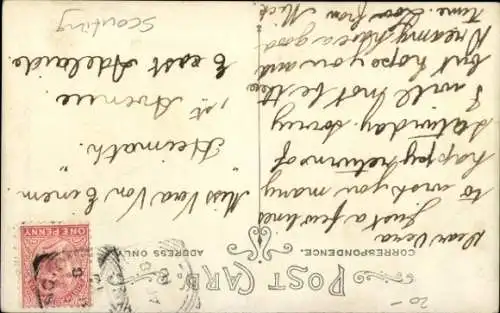 POST CARD.
CORRESPONDENCE.
ADDRESS ONLY.
Dear Vera
Just a few lines
to wish you many
happy returns of
Saturday. Sorry
I will not be there
but hope you and
Kreamy have a good
time. Love from Mick
Miss Vera Von Einem
"Heimath"
1st Avenue
East Adelaide
Scouting
ONE PENNY
20-